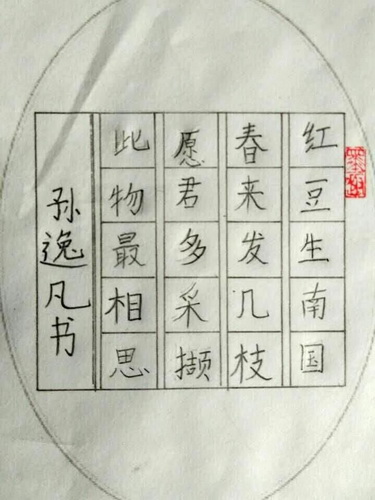 红豆生南国
春来发几枝
愿君多采撷
此物最相思
孙逸凡书